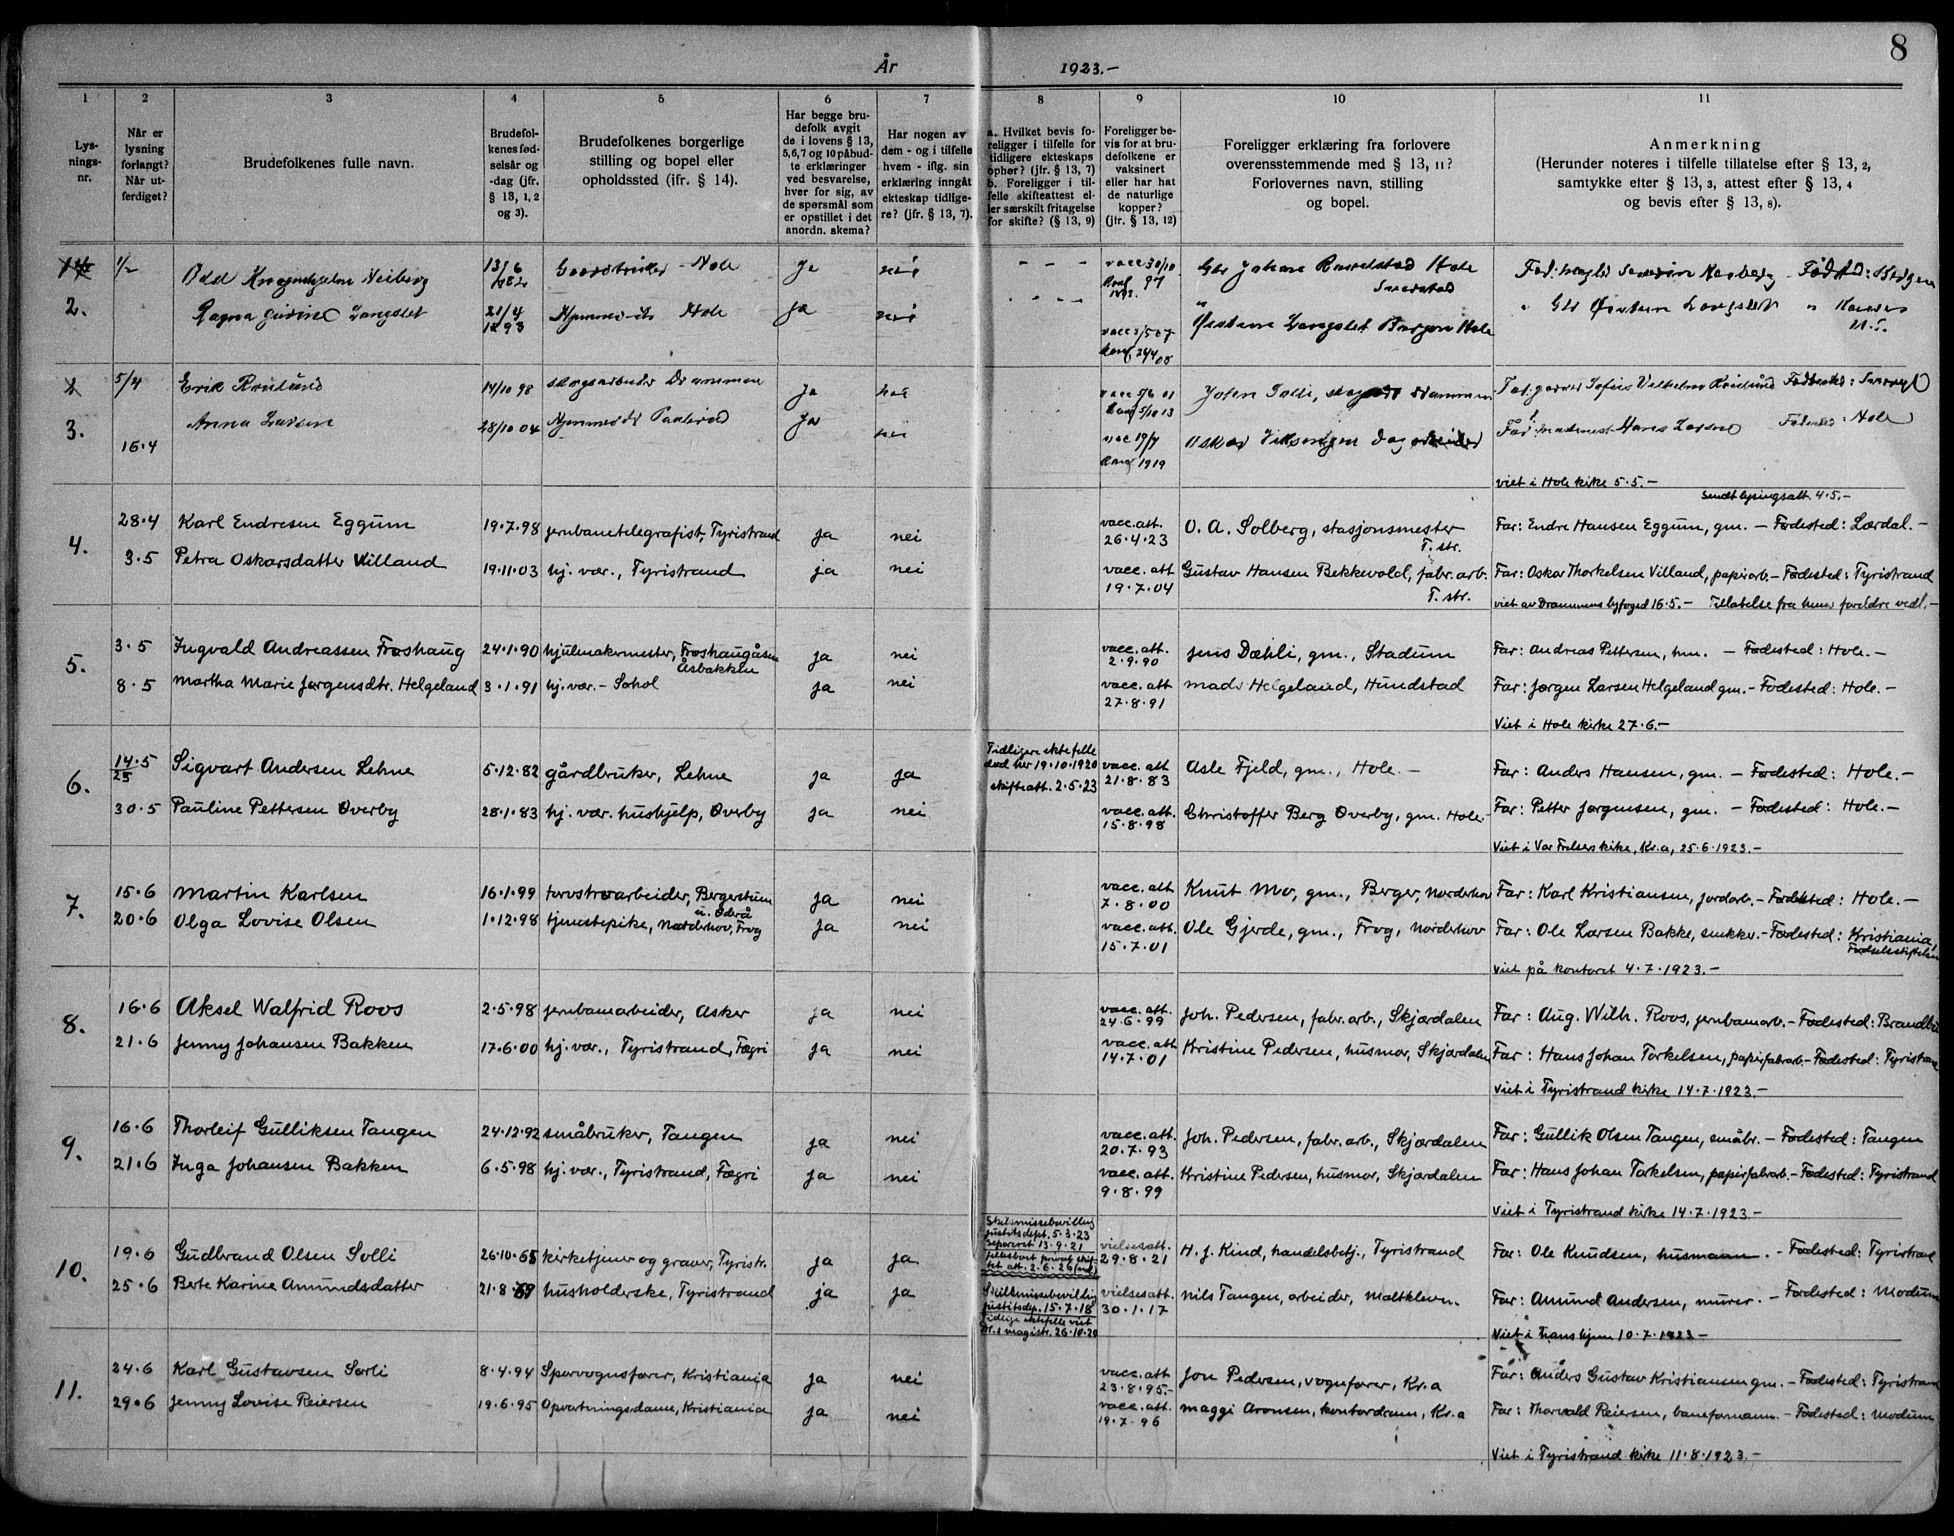 8
År 1923.-
1 2 3 4 5 6 7 8 9 10 11
Lys-
nings-
nr.
Når er
lysning
forlangt?
Når ut-
ferdiget?
Brudefolkenes fulle navn.
Brudefol-
kenes fød-
selsår og
-dag (jfr.
§ 13, 1, 2
og 3).
Brudefolkenes borgerlige
stilling og bopel eller
opholdssted (ifr. § 14).
Har begge bru-
defolk avgit
de i lovens § 13,
5,6,7 og 10 påbud-
te erklæringer
ved besvarelse,
hver for sig, av
de spørsmål som
er opstillet i det
anordn. skema?
Har nogen av
dem - og i tilfelle
hvem - iflg. sin
erklæring inngått
ekteskap tidlige-
re? (jfr. § 13, 7).
a. Hvilket bevis fo-
religger i tilfelle for
tidligere ekteskaps
ophør? (jfr. § 13, 7)
b. Foreligger i til-
felle skifteattest el-
ler særskilt fritagelse
for skifte? (§ 13, 9)
Foreligger be-
vis for at bru-
defolkene er
vaksinert
eller har hat
de naturlige
kopper?
(jfr. § 13, 12)
Foreligger erklæring fra forlovere
overensstemmende med § 13, 11?
Forlovernes navn, stilling
og bopel.
Anmerkning
(Herunder noteres i tilfelle tillatelse efter § 13, 2,
samtykke efter § 13, 3, attest efter § 13, 4
og bevis efter § 13, 8).
1/2 Odd 13/6 Hole ja nei - - - vacc 30/10 97 Johan Hole Født: Bergen
2. Ragna 21/4 1893 Hole ja nei - - - Østen Hole
5/4 Erik 14/10 98 skogsarbeider Drammen ja nei vacc 5/6 01 Drammen
3. Anna Larsen 28/10 04 ja nei vac 19/7 Oskar Far: Hans Larsen Hole
16.4 1919
viet i Hole kirke 5.5.-
Sendt lysingsatt. 4.5.-
28.4 Karl Endresen Eggum 19.7.98 jernbanetelegrafist, Tyristrand ja nei vacc. att. 26.4.23 O. A. Solberg, stasjonsmester T. str. Far: Endre Hansen Eggum, gm. - Fødested: Lærdal.-
4.
3.5 Petra Oskarsdatter Villand 19.11.03 hj. vær., Tyristrand ja nei vacc. att. 19.7.04 Gustav Hansen Bekkevold, fabr. arb. T. str. Far: Oskar Thorkelsen Villand, papirarb.- Fødested: Tyristrand
viet av Drammens byfoged 16.5.- Tillatelse fra hms foreldre vedl.-
3.5 Ingvald Andreassen Froshaug 24.1.90 hjulmakermester, Froshaugåsen Åsbakken ja nei vacc. att. 2.9.90 Jens Dæhli, gm., Stadum Far: Andreas Pettersen, hm. - Fødested: Hole.-
5.
8.5 Martha Marie Jørgensdtr. Helgeland 3.1.91 hj. vær. - Sohol ja nei vacc. att 27.8.91 Mads Helgeland, Hundstad Far: Jørgen Larsen Helgeland gm.- Fødested: Hole.-
Viet i Hole kirke 27.6.-
14.5 25 Sigvart Andersen Lehne 5.12.82 gårdbruker, Lehne ja ja Tidligere ektefelle død her 19.10.1920 skifteatt. 2.5.23 vacc. att 21.8.83 Asle Fjeld, gm., Hole.- Far: Anders Hansen, gm. - Fødested: Hole.-
6.
30.5 Pauline Pettersen Øverby 28.1.83 hj. vær. hushjelp, Øverby ja nei vacc. att. 15.8.98 Christoffer Berg Øverby, gm. Hole.- Far: Petter Jørgensen, gm. - Fødested: Hole.-
Viet i Vår Frelsers kirke, Kr.a, 25.6.1923.-
15.6 Martin Karlsen 16.1.99 torvstrøarbeider, Bergerstum u. Oderå ja nei vacc. att 7.8.00 Knut Mo, gm., Berger, Norderhov Far: Karl Kristiansen, jordarb.- Fødested: Hole.-
7.
20.6 Olga Lovise Olsen 1.12.98 tjenestepike, Norderhov, Frog ja nei vacc. att. 15.7.01 Ole Gjerde, gm., Frog, Norderhov Far: Ole Larsen Bakke, snekker.- Fødested: Kristiania, Fødselsstiftelsen
viet på kontoret 4.7.1923.-
16.6 Aksel Walfrid Roos 2.5.98 jernbanearbeider, Asker ja nei vacc. att. 24.6.99 Joh. Pedersen, fabr. arb., Skjærdalen Far: Aug. Wilh. Roos, jernbanearb.- Fødested: Brandbu
8.
21.6 Jenny Johansen Bakken 17.6.00 hj. vær., Tyristrand, Fægri ja nei vacc. att 14.7.01 Kristine Pedersen, husmor, Skjærdalen Far: Hans Johan Torkelsen, papirfabrarb.- Fødested: Tyristrand
Viet i Tyristrand kirke 14.7.1923.-
16.6 Thorleif Gulliksen Tangen 24.12.92 småbruker, Tangen ja nei vacc. att. 20.7.93 Joh. Pedersen, fabr. arb., Skjærdalen Far: Gullik Olsen Tangen, småbr.- Fødested: Tangen
9.
21.6 Inga Johansen Bakken 6.5.98 hj. vær., Tyristrand, Fægri ja nei vacc. att. 9.8.99 Kristine Pedersen, husmor, Skjærdalen Far: Hans Johan Torkelsen, papirfabrarb.- Fødested: Tyristrand
Viet i Tyristrand kirke 14.7.1923.-
19.6 Gudbrand Olsen Solli 26.10.65 kirketjener og graver, Tyristr. ja ja Skilsmissebevilling justitsdept. 5.3.23 Separert 13.9.21 privat skiftet att. 2.6.26 vielsesatt. 29.8.21 H. J. Kind, handelsbetj., Tyristrand Far: Ole Knudsen, husmann. - Fødested: Tyristrand
10.
25.6 Berte Karine Amundsdatter 21.8.69 husholderske, Tyristrand ja ja Skilsmissebevilling justitsdep. 15.7.18 Tidlige ektefelle viet magistr. 26.10.20 vielsesatt. 30.1.17 Nils Tangen, arbeider, Maltkleven. Far: Amund Andersen, murer. - Fødested: Modum
Viet i 10.7.1923-
24.6 Karl Gustavsen Sørli 8.4.94 Sporvognsfører, Kristiania ja nei vacc. att 23.8.95.- Jon Pedersen, vognfører, Kr.a Far: Anders Gustav Kristiansen gm.- Fødested: Tyristrand
11.
29.6 Jenny Lovise Reiersen 19.6.95 Opvartningsdame, Kristiania ja nei vacc. att. 19.7.96 Maggi Aronsen, kontordame, Kr.a Far: Thorvald Reiersen, baneformann. - Fødested: Modum
Viet i Tyristrand kirke 11.8.1923.-